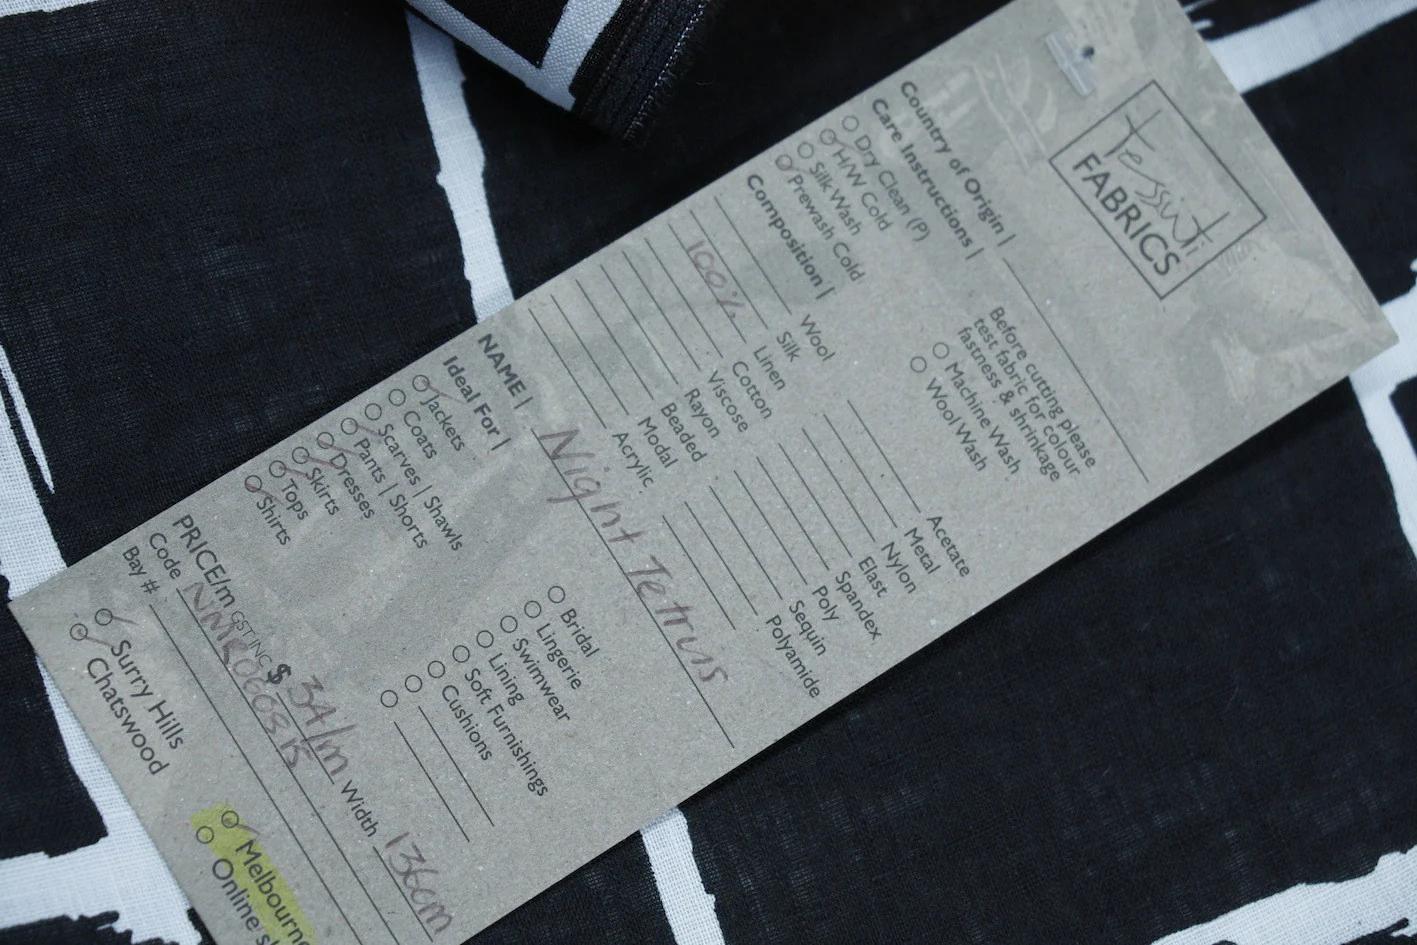 Tessuti
FABRICS
Country of Origin |
Care Instructions |
Dry Clean (P)
H/W Cold
Silk Wash
Prewash Cold
Before cutting please
test fabric for colour
fastness & shrinkage
Machine Wash
Wool Wash
Composition |
Wool
Silk
100% Linen
Cotton
Viscose
Rayon
Beaded
Modal
Acrylic
Acetate
Metal
Nylon
Elast
Spandex
Poly
Sequin
Polyamide
NAME | Night Tetris
Ideal For |
Jackets
Coats
Scarves | Shawls
Pants | Shorts
Dresses
Skirts
Tops
Shirts
Bridal
Lingerie
Swimwear
Lining
Soft Furnishings
Cushions
PRICE/m GST INC $ 34/m Width 136cm
Code
Bay #
Surry Hills
Chatswood
Melbourn
Online